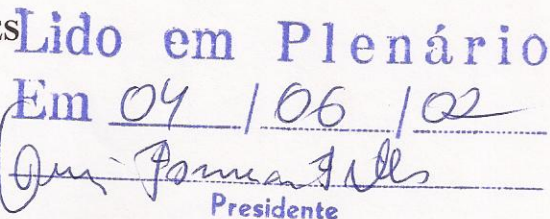 es
Lido em Plenário
Em 04 / 06 / 02
Presidente